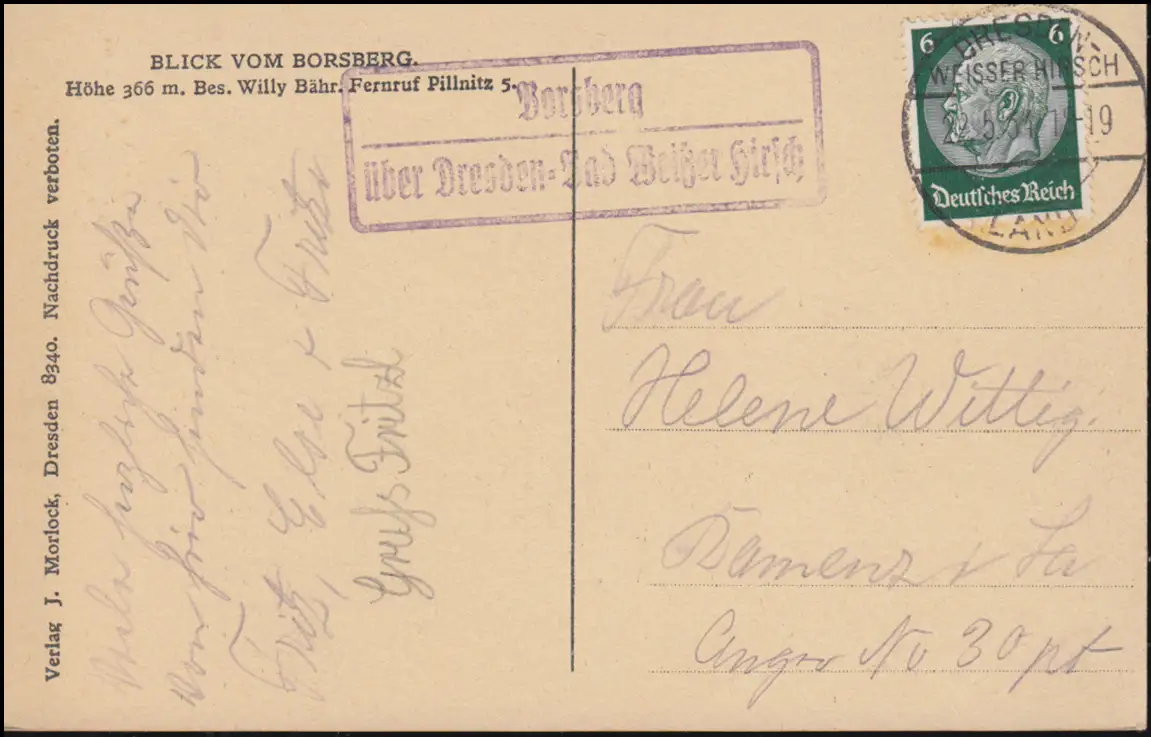 BLICK VOM BORSBERG.
Höhe 366 m. Bes. Willy Bähr. Fernruf Pillnitz 5.
Borsberg
über Dresden-Bad Weißer Hirsch
6 6
Deutsches Reich
DRESDEN-
WEISSER HIRSCH
22.5.34. -19
LAND
Verlag J. Morlock, Dresden 8340. Nachdruck verboten.
Viele herzliche Grüße
von hier senden Dir
Fritz, Else + Fritz
Gruß Fritzl
Frau
Helene Wittig.
Kamenz i Sa
Anger No 30 pt